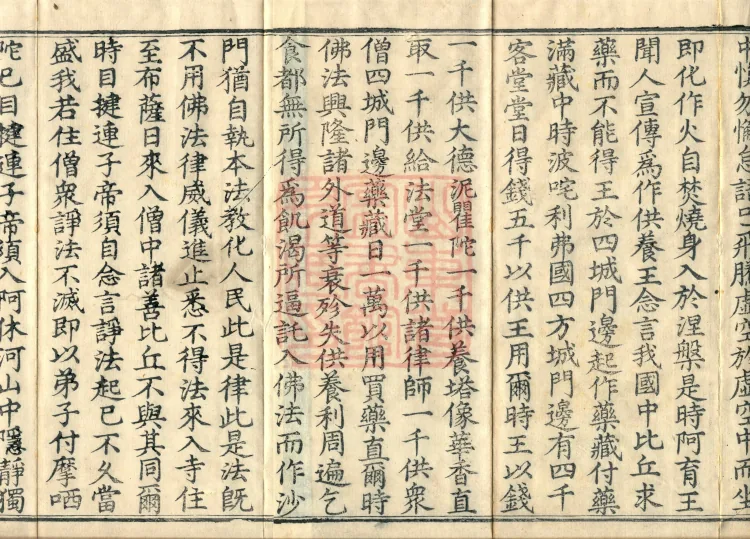 中惰勿懈怠語已飛騰虛空於虛空中而坐
即化作火自焚燒身入於涅槃是時阿育王
聞人宣傳爲作供養王念言我國中比丘求
藥而不能得王於四城門邊起作藥藏付藥
滿藏中時波咤利弗國四方城門邊有四千
客堂堂日得錢五千以供王用爾時王以錢
一千供大德泥瞿陀一千供養塔像華香直
取一千供給法堂一千供諸律師一千供衆
僧四城門邊藥藏日一萬以用買藥直爾時
佛法興隆諸外道等衰殄失供養利周遍乞
食都無所得爲飢渴所逼託入佛法而作沙
門猶自執本法教化人民此是律此是法旣
不用佛法律威儀進止悉不得法來入寺住
至布薩日來入僧中諸善比丘不與其同爾
時目揵連子帝須自念言諍法起已不久當
盛我若住僧衆諍法不滅即以弟子付摩哂
陀已目揵連子帝須入阿休河山中隱靜獨